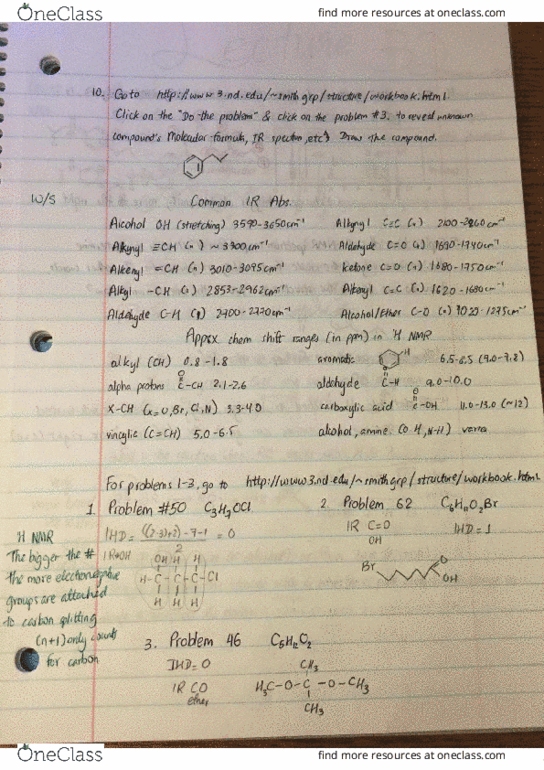 OneClass
find more resources at oneclass.com
10. Go to http://www3.nd.edu/~smithgrp/structure/workbook.html.
Click on the "Do the problem" & click on the problem #3. to reveal unknown
compound's Molecular formula, IR , etc. Draw the compound.
W/S Common IR Abs.
Alcohol OH (stretching) 3590-3650cm⁻¹
Alkynyl ≡CH (s) ~3300cm⁻¹
Alkenyl =CH (s) 3010-3095cm⁻¹
Alkyl -CH (s) 2853-2962cm⁻¹
Aldehyde C-H 2700-2770cm⁻¹
C≡C (s) cm⁻¹
Aldehyde C=O (s) 1690-1740cm⁻¹
Ketone C=O (s) 1680-1750cm⁻¹
Alkenyl C=C (s) 1620-1680cm⁻¹
Alcohol/Ether C-O (s) 1020-1275cm⁻¹
Appox chem shift ranges (in ppm) in ¹H NMR
alkyl (CH) 0.8-1.8
alpha protons O C-CH 2.1-2.6
X-CH (x=O,Br,Cl,N) 3.3-4.0
vinylic (C=CH) 5.0-6.5
aromatic H
aldehyde O C-H 9.0-10.0
carboxylic acid O C-OH 11.0-13.0 (~12)
alcohol, amine (OH, N-H)
For problems 1-3, go to http://www3.nd.edu/~smithgrp/structure/workbook.html
1. Problem #50 C₃H₇OCl
IHD= ((2·3)+2)-7-1 = 0
2
IR OH
OH H H
H-C-C-C-Cl
H H H
2. Problem 62 Br
IR C=O IHD=1
OH
Br O OH
H NMR
The bigger the #
the more electronegative
groups are attached
to carbon splitting
(n+1) only counts
for carbon
3. Problem 46 C₅H₁₂O₂
IHD=0
IR CO
ether
CH₃
H₃C-O-C-O-CH₃
CH₃
OneClass
find more resources at oneclass.com